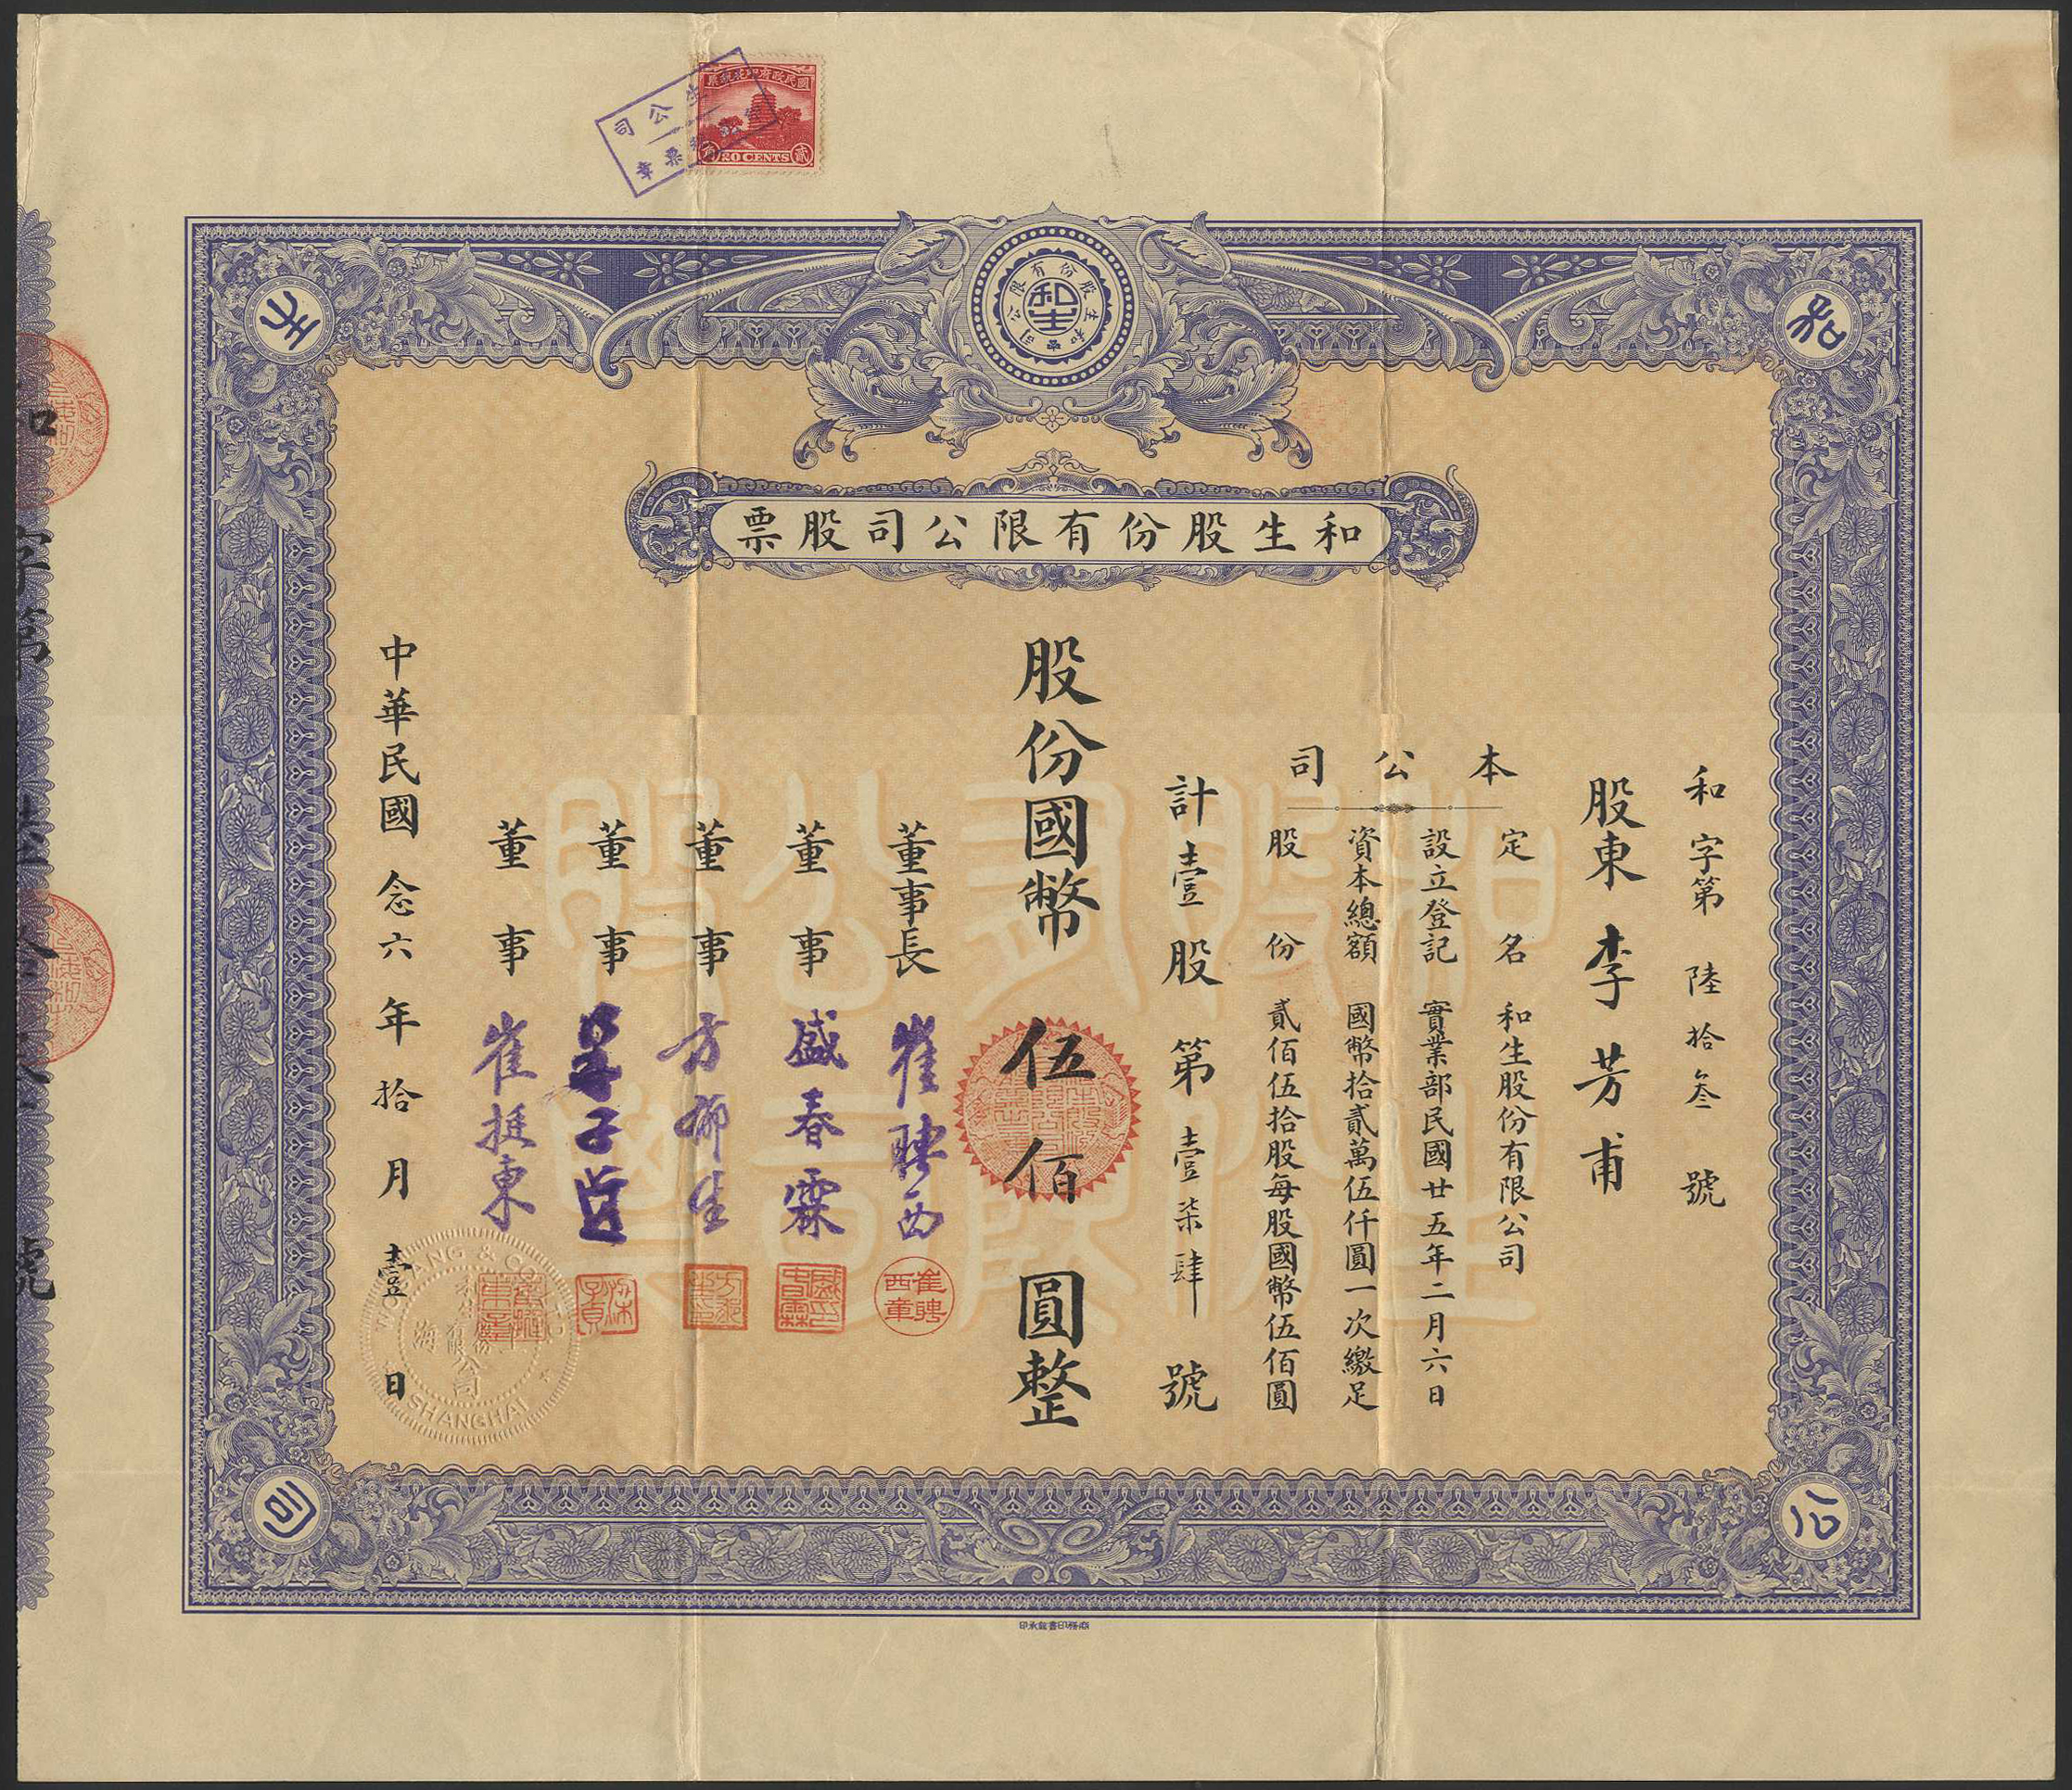 國民政府印花税票
20 CENTS
貳
生公司
票
章
和生股份有限公司
和生
和
生
公
司
和生股份有限公司股票
和字第陸拾叁號
股東李芳甫
本公司
定名 和生股份有限公司
設立登記 實業部民國廿五年二月六日
資本總額 國幣拾貳萬伍仟圓一次繳足
股份 貳佰伍拾股每股國幣伍佰圓
計壹股第壹柒肆號
股份國幣伍佰圓整
董事長 崔聘西
崔聘西章
董事 盛春霖
董事 方椰生
董事
董事 崔挺東
中華民國念六年拾月壹日
SHANGHAI
商務印書館承印